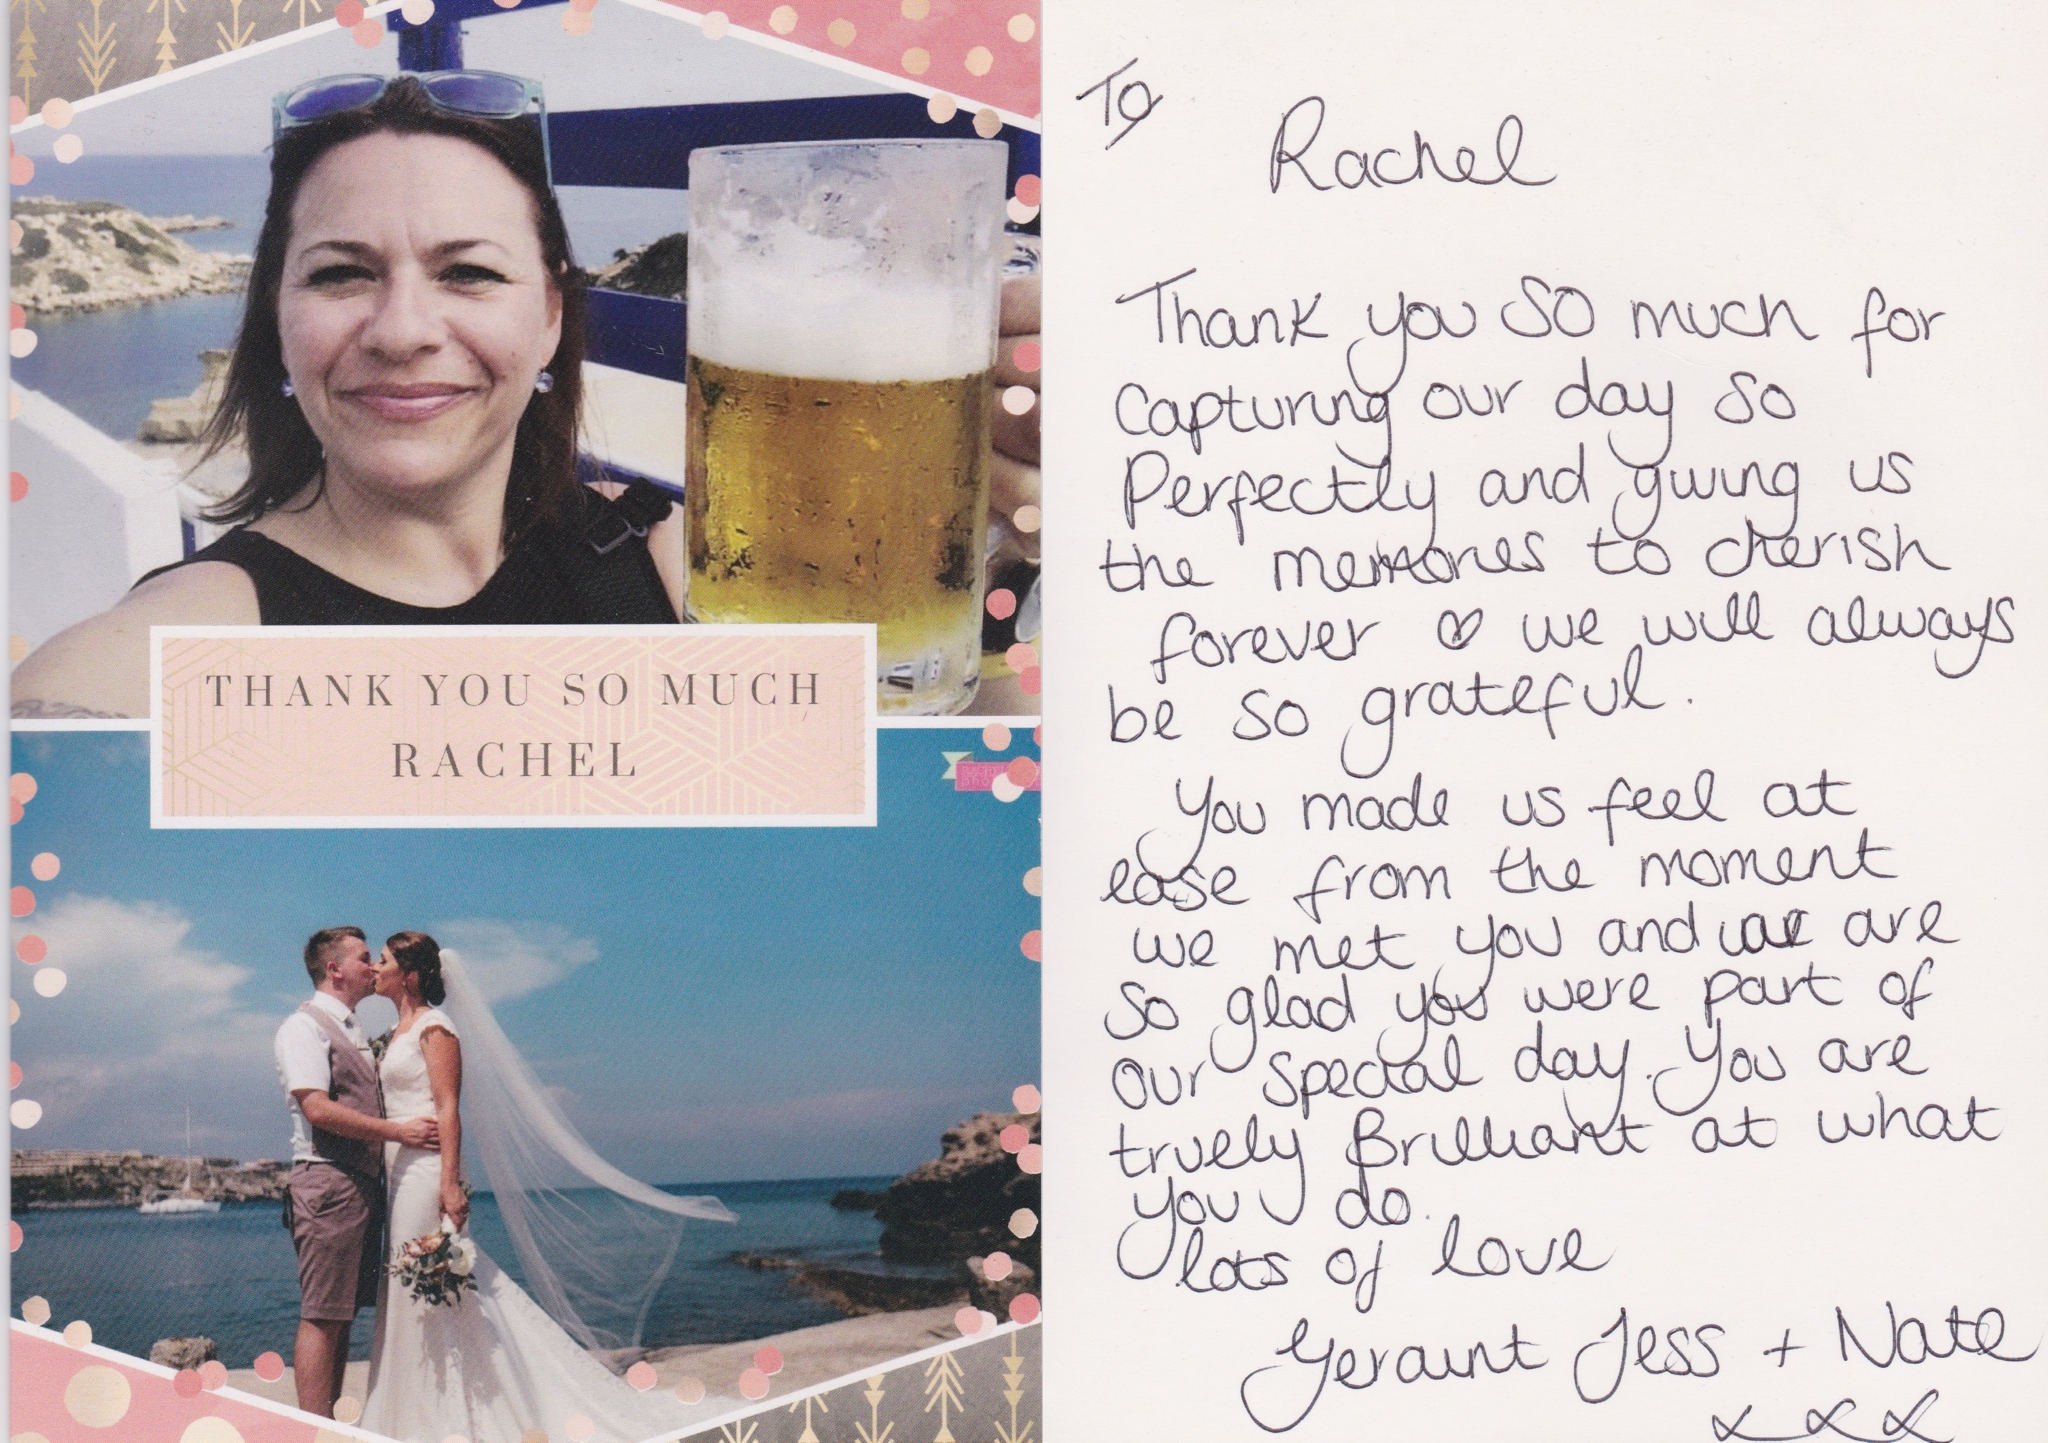 THANK YOU SO MUCH
RACHEL
To
Rachel
Thank you SO much for
capturing our day so
Perfectly and giving us
the memories to cherish
forever ♡ we will always
be so grateful.
You made us feel at
ease from the moment
we met you and are
so glad you were part of
our special day. You are
truely Brilliant at what
you do.
lots of love
Geraint Jess + Nate
xxx